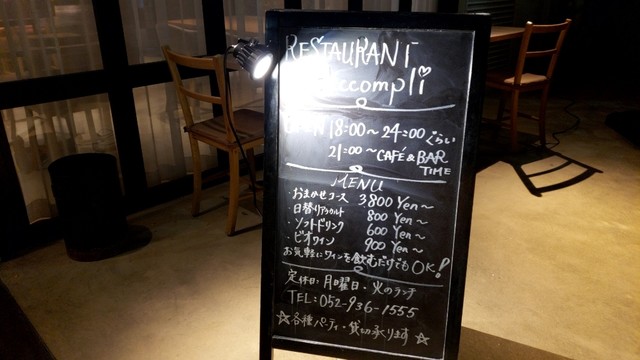 RESTAURANT
accompli
OPEN 18:00~24:00ぐらい
21:00~CAFÉ & BAR
TIME
MENU
・おまかせコース 3800 Yen~
・日替りアラカルト 800 Yen~
・ソフトドリンク 600 Yen~
・ビオワイン 900 Yen~
お気軽にワインを飲むだけでもOK!
定休日:月曜日・火のランチ
TEL:052-936-1555
☆各種パーティ・貸切承ります☆